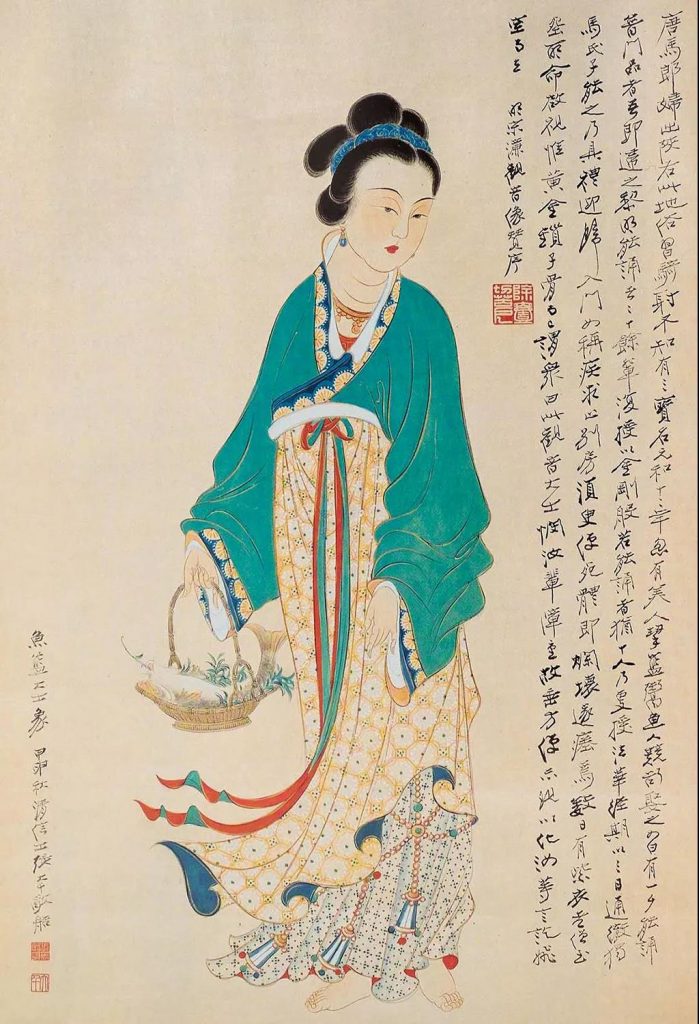 唐馬郎婦出陝右此地俗習騎射不知有三寶名元和十二年忽有美人挈籃鬻魚人競欲娶之曰有一夕能誦
普門品者吾即適之黎明能誦者二十餘輩復授以金剛般若能誦者猶十人乃更授法華經期以三日通徹獨
馬氏子能之乃具禮迎歸入門女稱疾求止別房須臾便死體即爛壞遂瘞焉數日有紫衣老僧至
瘞所命啟視惟黃金鎖子骨而已謂衆曰此觀音大士憫汝輩障重故垂方便示現以化汝等言訖飛
空而去 明宋濂觀音像贊序
魚籃大士象 甲申秋 清信士張大千敬